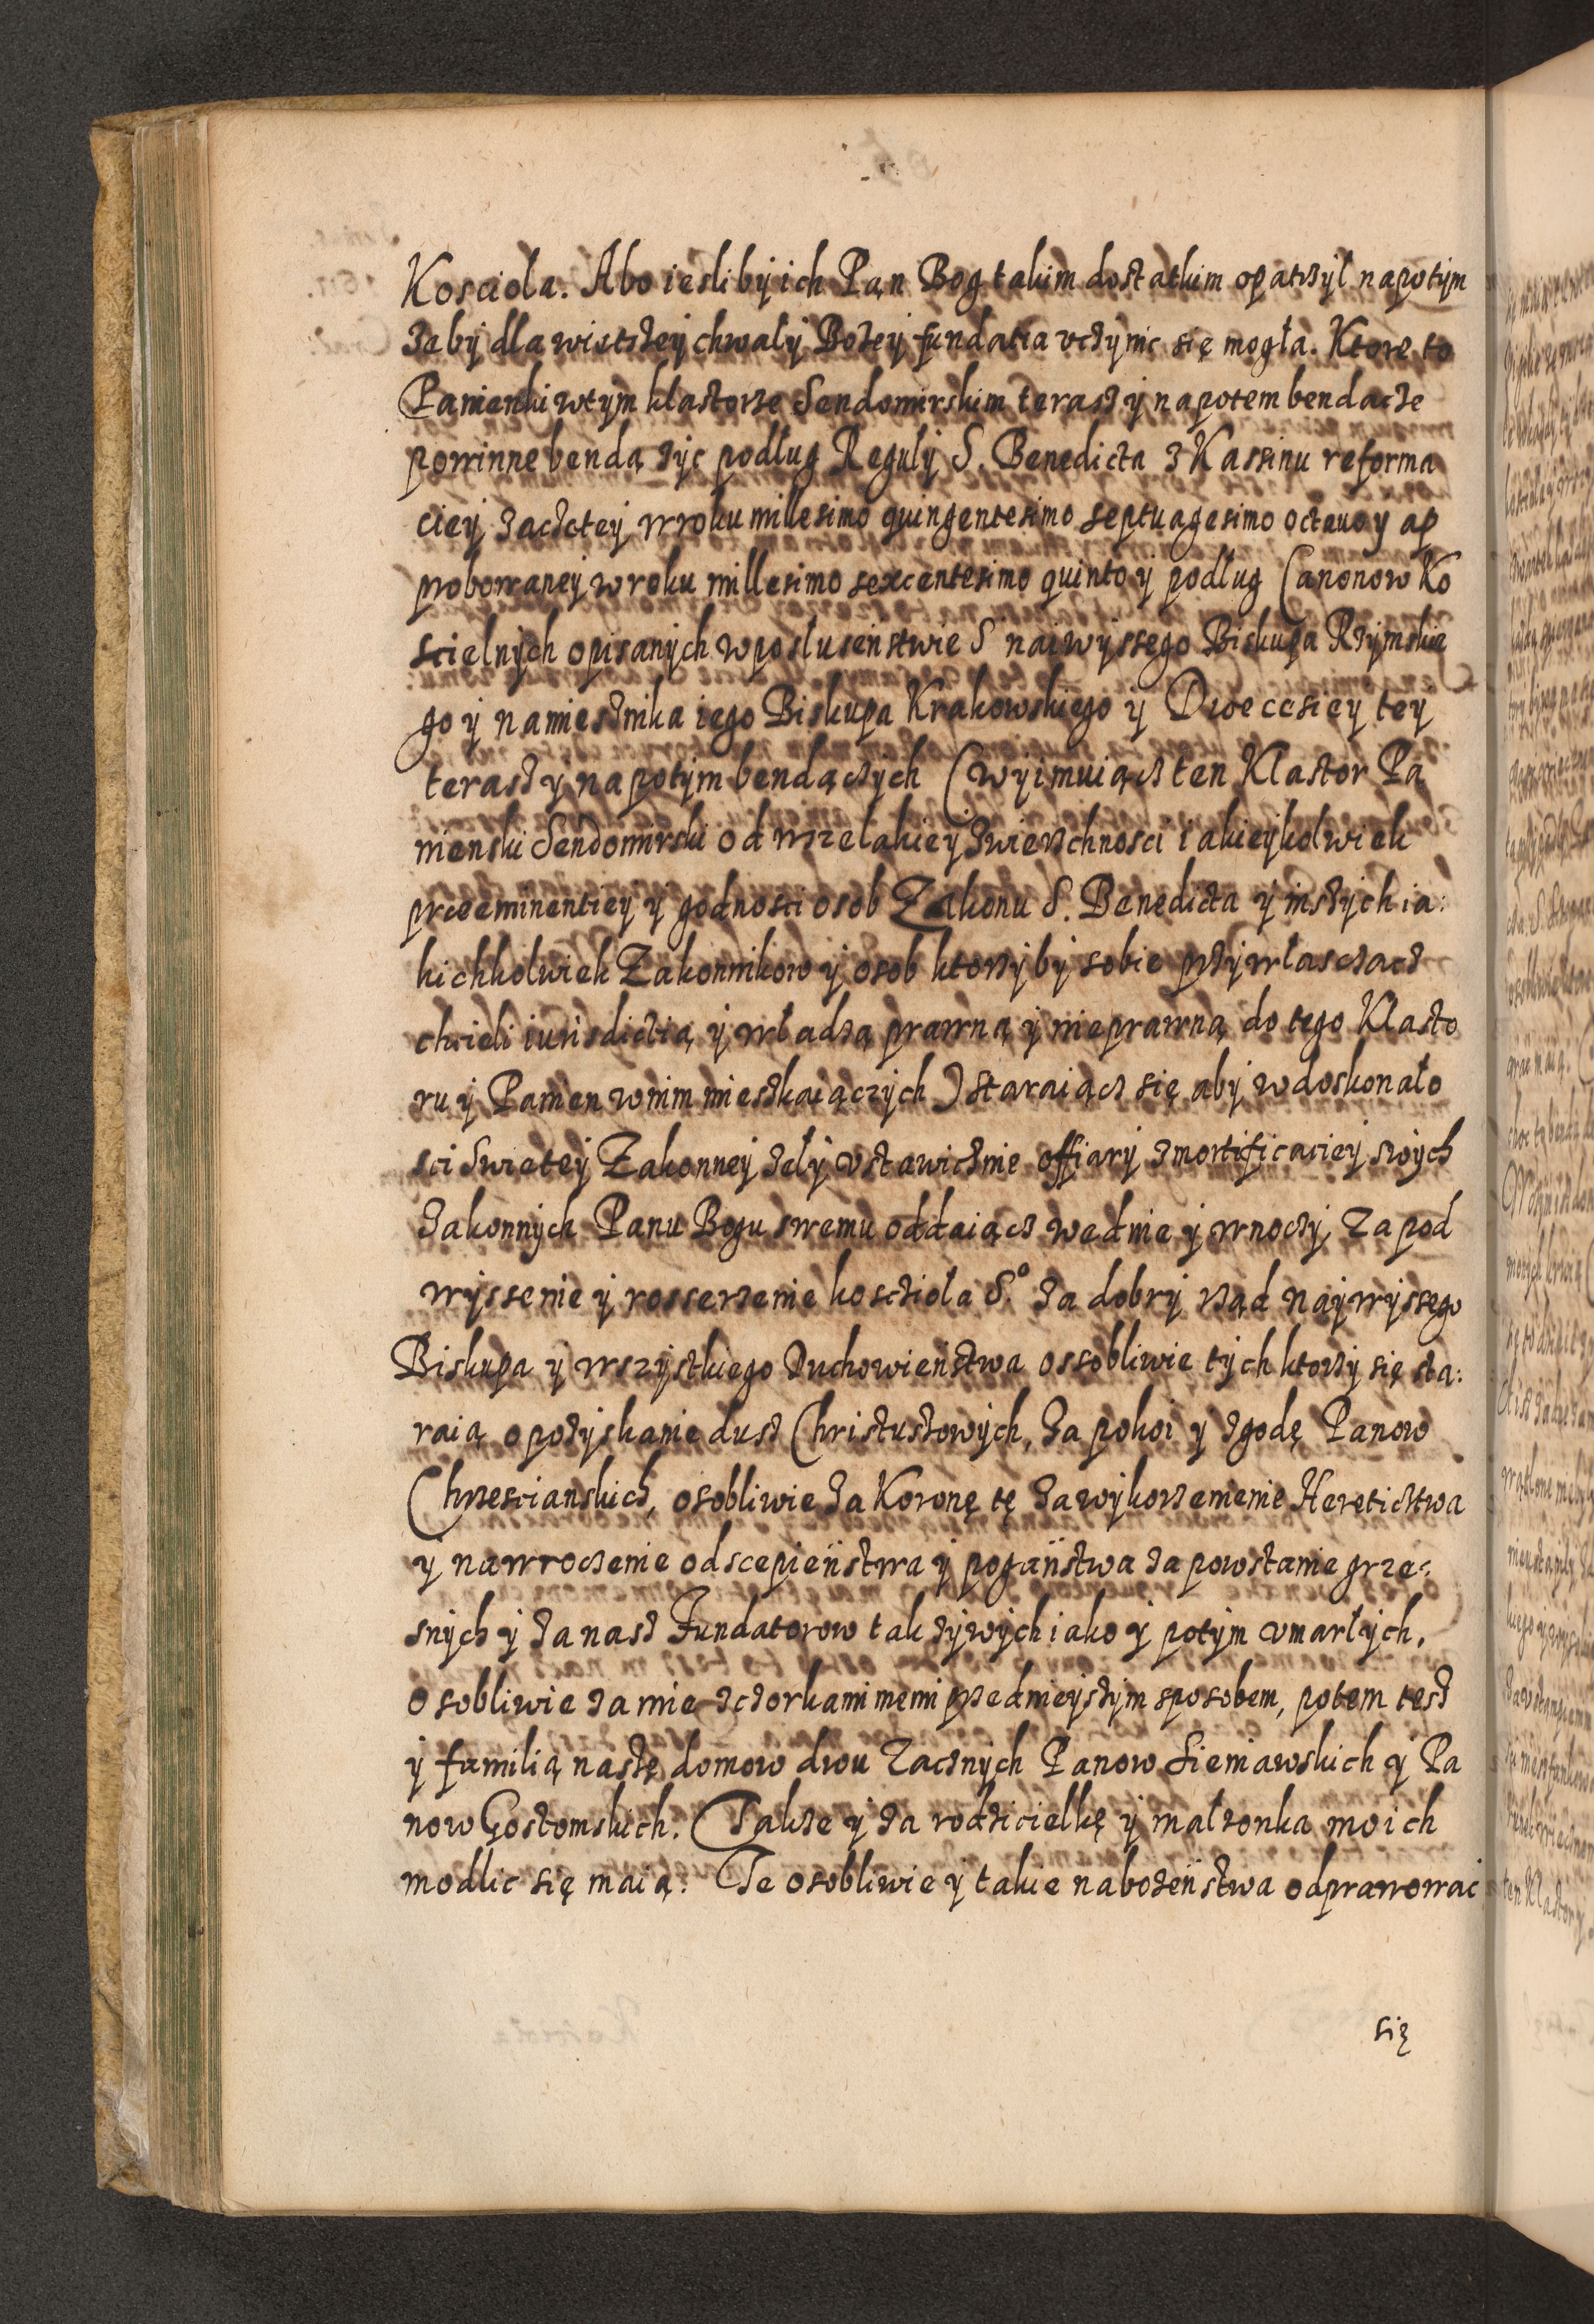 Kosciola. Abo iesli by ich Pan Bog takim dostatkim opatrzyl napotym
zeby dla więtszey chwaly Bozey fundatia vczynic się mogła. Ktore to
Panienki w tym klastorze Sendomirskim teraz y napotem bendacze
powinne bendą zyc podlug Reguly S. Benedicta z Kassinu reforma
ciey zaczętey w roku millesimo quingentesimo septuagesimo octauo y ap
probowaney w roku millesimo sexcentesimo quinto y podlug Canonow Ko
scielnych opisanych w poslusenstwie S naiwyssego Biskupa Rzymskie
go y namiesznika iego Biskupa Krakowskiego y Dioecesiey tey
teraz y na potym bendączych (wyimuiącz ten Klastor Pa
nienski Sendomirski od wszelakiey zwierzchnosci iakieykolwiek
praeeminentiey y godnosci osob Zakonu S. Benedicta y inszych ia:
kichkolwiek Zakonnikow y osob ktorzyby sobie przywlasczacz
chcieli iurisdictią y wladzą prawną y nieprawną do tego Klasto
ru y Panien w nim mieszkaiączych) staraiącz się aby w doskonało
sci Swietey Zakonney zely vstawicznie offiary z mortificaciey swych
zakonnych Panu Bogu swemu oddaiącz we dnie y w noczy, za pod
wyssenie y rosserzenie kosciola S.º za dobry rząd naywyssego
Biskupa y wszystkiego Duchowieństwa ossobliwie tych ktorzy się sta:
raią o pozyskanie dusz Christusowych, za pokoi y zgodę Panow
Chrzescianskich, osobliwie za Koronę tę za wykorzenienie Heretictwa
y nawroczenie odscepieństwa y pogaństwa za powstanie grze:
snych y za nasz Fundatorow tak zywych iako y potym vmarłych,
osobliwie za mie z czorkami memi przednieyszym sposobem, potem tesz
y familią naszę domow dwu zacznych Panow Sieniawskich y Pa
now Gostomskich. Takze y za rodzicielkę y malzonka moich
modlic się maią: Te osobliwie y takie nabozeństwa odprawowac
się